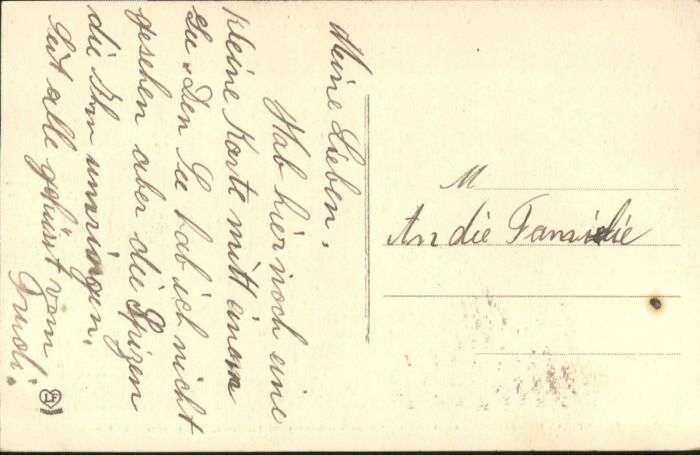 Meine Lieben,
Hab hier noch eine
kleine Karte mitt einem
See Den See hab ich nicht
gesehen aber die Spizen
die Ihn umringen.
Seit alle geküsst vom
Trudi.
M
An die Familie
LF